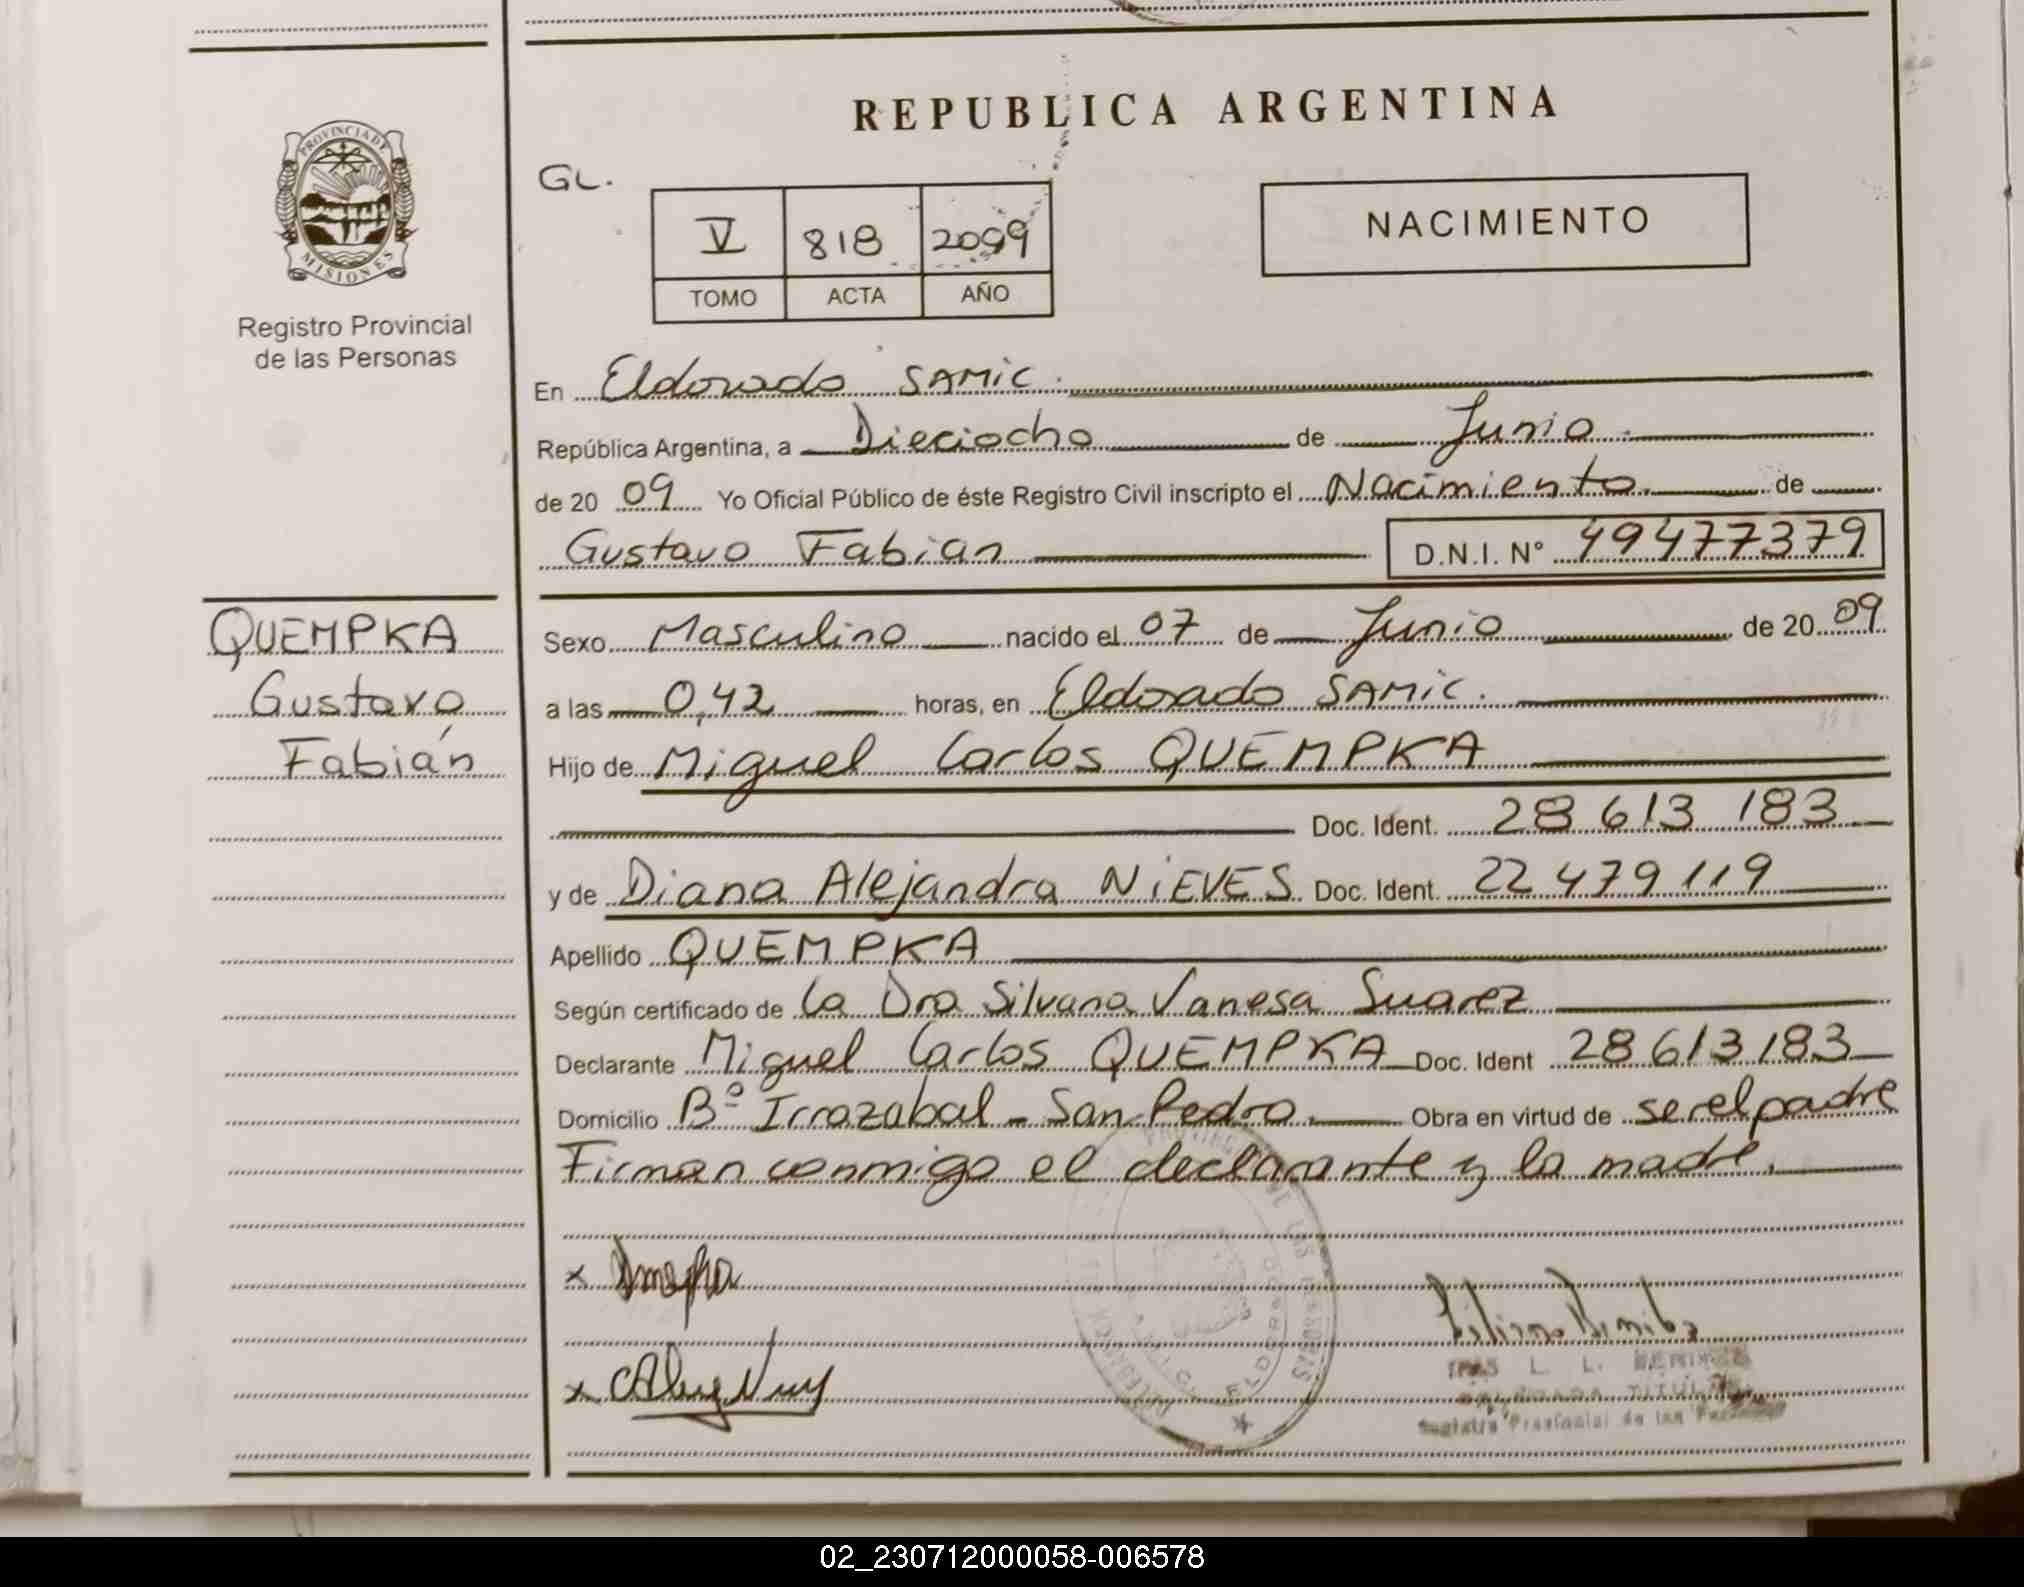 REPUBLICA ARGENTINA
GL.
V 818 2009
TOMO ACTA AÑO
NACIMIENTO
PROVINCIA DE
MISIONES
Registro Provincial
de las Personas
En Eldorado SAMIC.
República Argentina, a Dieciocho de Junio
de 20 09 Yo Oficial Público de éste Registro Civil inscripto el Nacimiento de
Gustavo Fabian D.N.I. Nº 49477379
QUEMPKA
Gustavo
Fabián
Sexo Masculino nacido el 07 de Junio de 20 09
a las 0,42 horas, en Eldorado SAMIC.
Hijo de Miguel Carlos QUEMPKA
Doc. Ident. 28 613 183
y de Diana Alejandra NIEVES Doc. Ident. 22 479 119
Apellido QUEMPKA
Según certificado de la Dra Silvana Vanesa Suarez
Declarante Miguel Carlos QUEMPKA Doc. Ident 28 613 183
Domicilio Bº Irrazabal - San Pedro Obra en virtud de ser el padre
Firman conmigo el declarante y la madre.
x
x
L. L.
Registro Provincial de las
ELDORADO
02_230712000058-006578